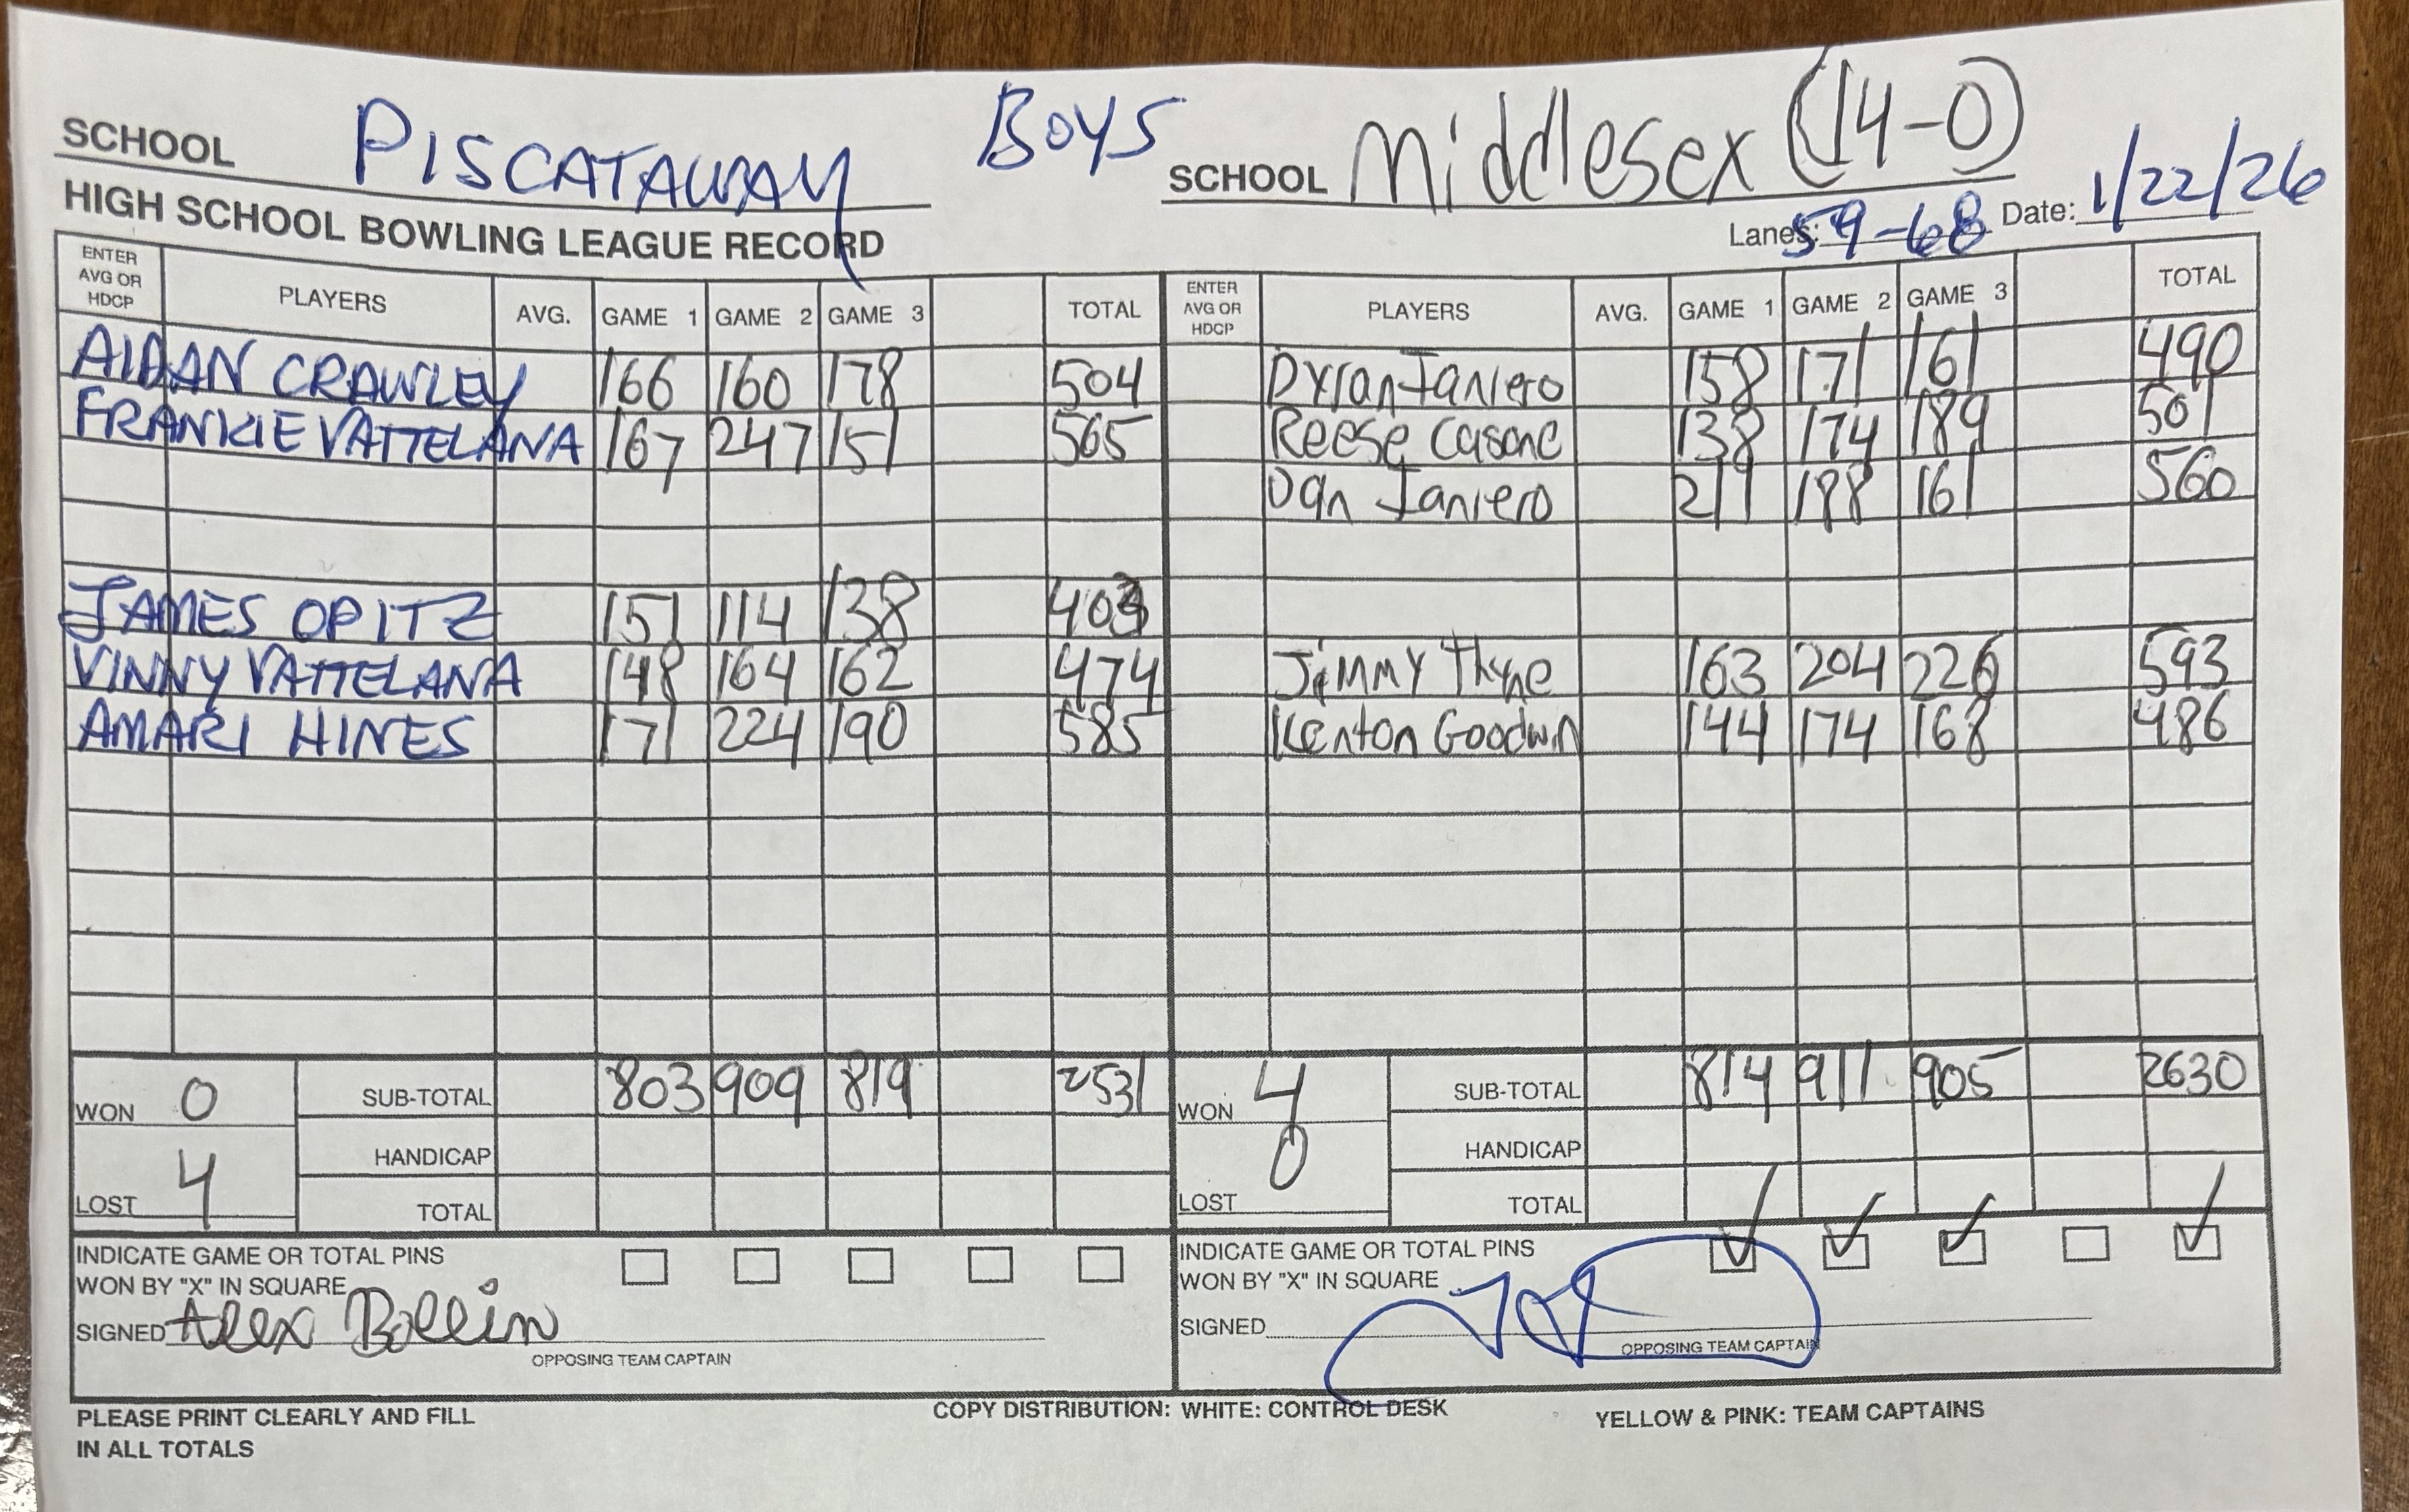 SCHOOL PISCATAWAY BOYS SCHOOL Middlesex (14-0)
HIGH SCHOOL BOWLING LEAGUE RECORD Lanes: 59-68 Date: 1/22/26
ENTER AVG OR HDCP PLAYERS AVG. GAME 1 GAME 2 GAME 3 TOTAL ENTER AVG OR HDCP PLAYERS AVG. GAME 1 GAME 2 GAME 3 TOTAL
AIDAN CRAWLEY 166 160 178 504 Janiero 158 171 161 490
FRANKIE VATTELANA 167 247 151 565 Reese Casone 138 174 189 501
Dan Janiero 211 188 161 560
JAMES OPITZ 151 114 138 403
VINNY VATTELANA 148 164 162 474 Jimmy Thyne 163 204 226 593
AMARI HINES 171 224 190 585 Kenton Goodwin 144 174 168 486
WON 0 SUB-TOTAL 803 909 819 2531 WON 4 SUB-TOTAL 814 911 905 2630
HANDICAP HANDICAP
LOST 4 TOTAL LOST 0 TOTAL
INDICATE GAME OR TOTAL PINS INDICATE GAME OR TOTAL PINS
WON BY "X" IN SQUARE WON BY "X" IN SQUARE
SIGNED Alex Bollin SIGNED
OPPOSING TEAM CAPTAIN OPPOSING TEAM CAPTAIN
PLEASE PRINT CLEARLY AND FILL COPY DISTRIBUTION: WHITE: CONTROL DESK YELLOW & PINK: TEAM CAPTAINS
IN ALL TOTALS